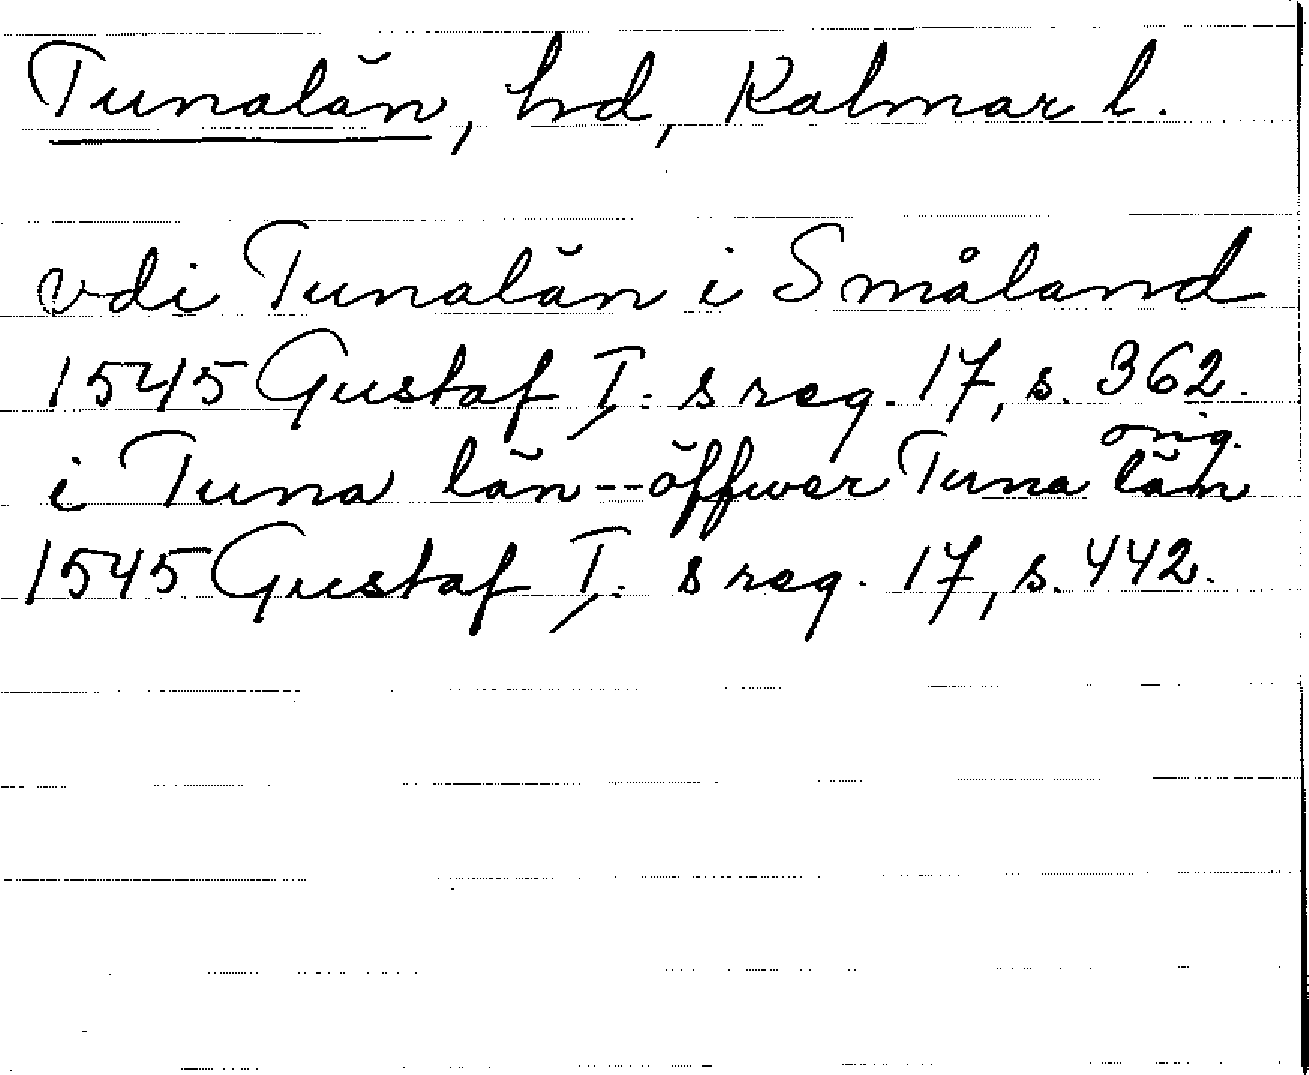 Tunalän, hd, Kalmar l.
vdi Tunalän i Småland
1545 Gustaf I: s reg. 17, s. 362.
orig.
i Tuna län -- öffwer Tuna län
1545 Gustaf I: s reg. 17, s. 442.